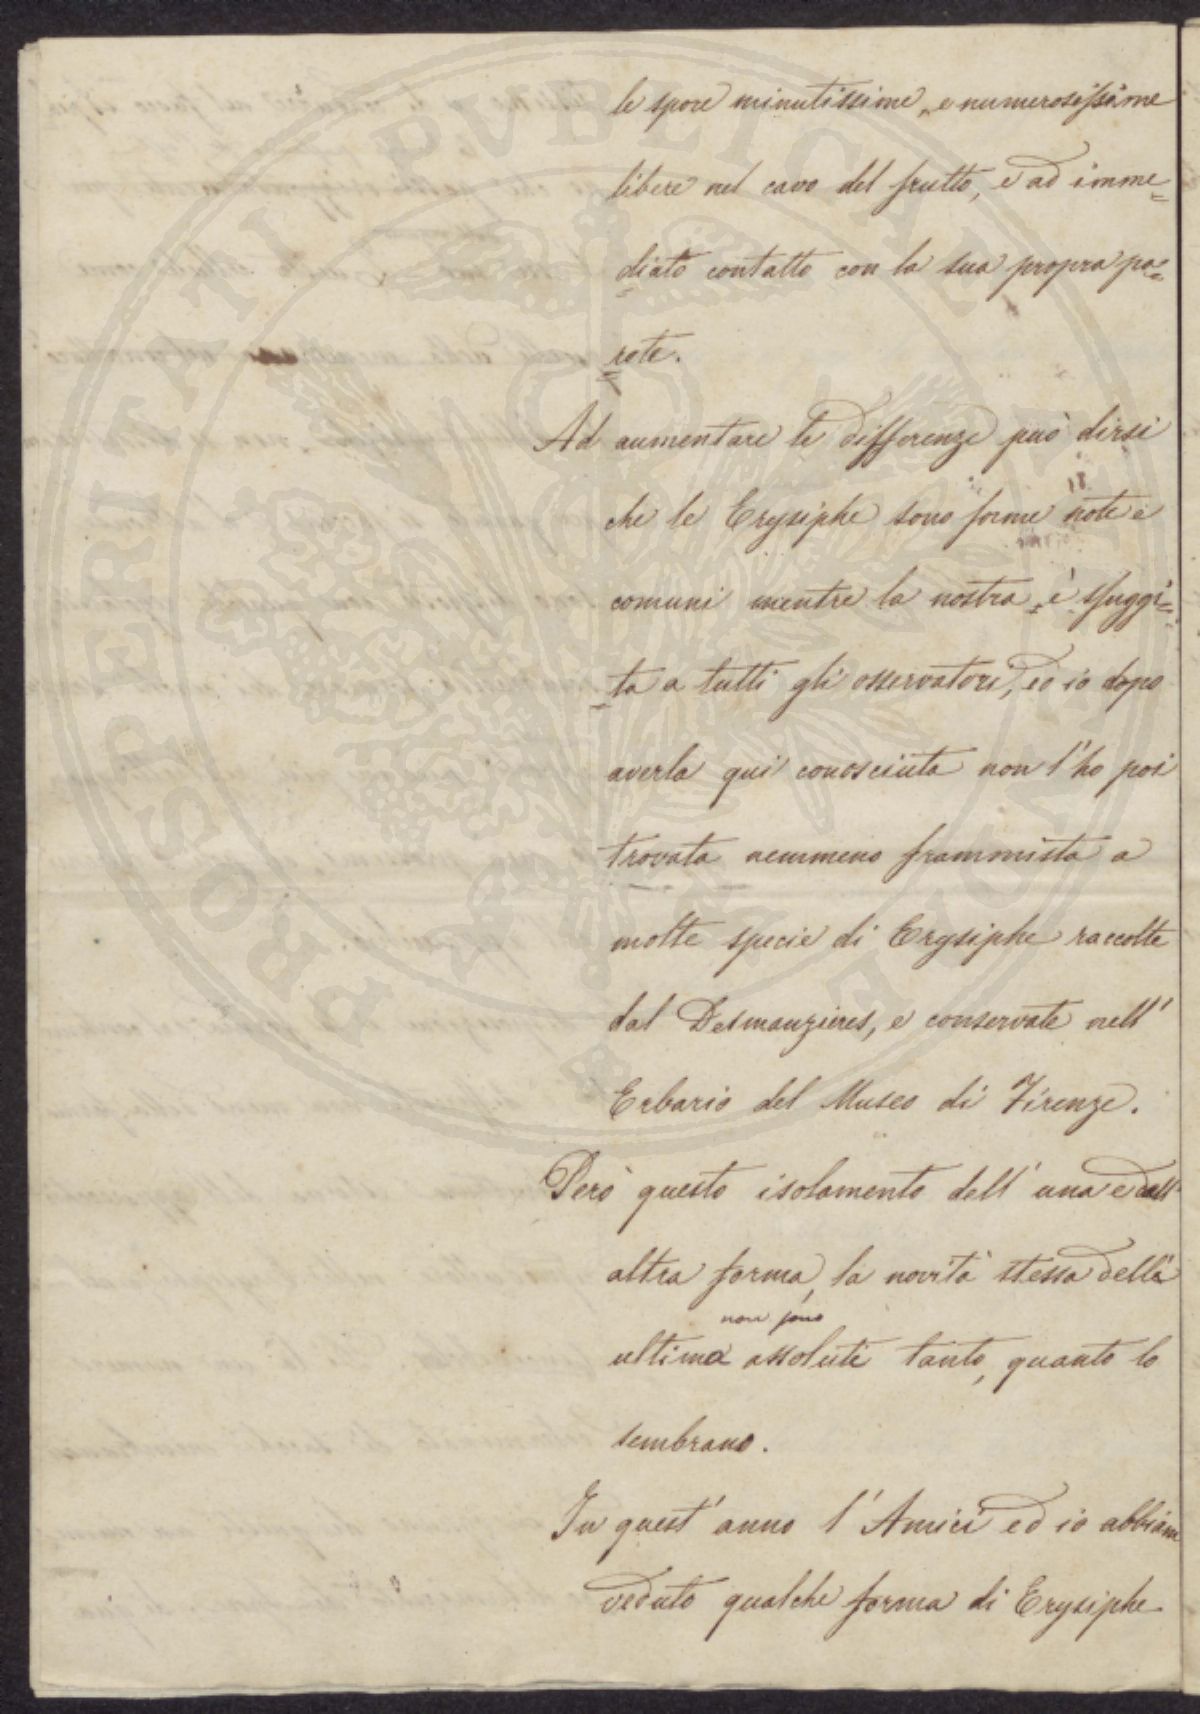 le spore minutissime, e numerosissime
libere nel cavo del frutto, e ad imme=
diato contatto con la sua propra pa=
rete.
Ad aumentare le differenze può dirsi
che le Erysiphe sono forme note e
comuni mentre la nostra è sfuggi=
ta a tutti gli osservatori, ed io dopo
averla qui conosciuta non l'ho poi
trovata nemmeno frammista a
molte specie di Erysiphe raccolte
dal Desmanzieres, e conservate nell'
Erbario del Museo di Firenze.
Però questo isolamento dell'una e dell'
altra forma, la novità stessa dell'
non sono
ultima assolute tanto, quanto lo
sembrano.
In quest'anno l'Amici ed io abbiam
veduto qualche forma di Erysiphe
PROSPERITATI PVBLICAE